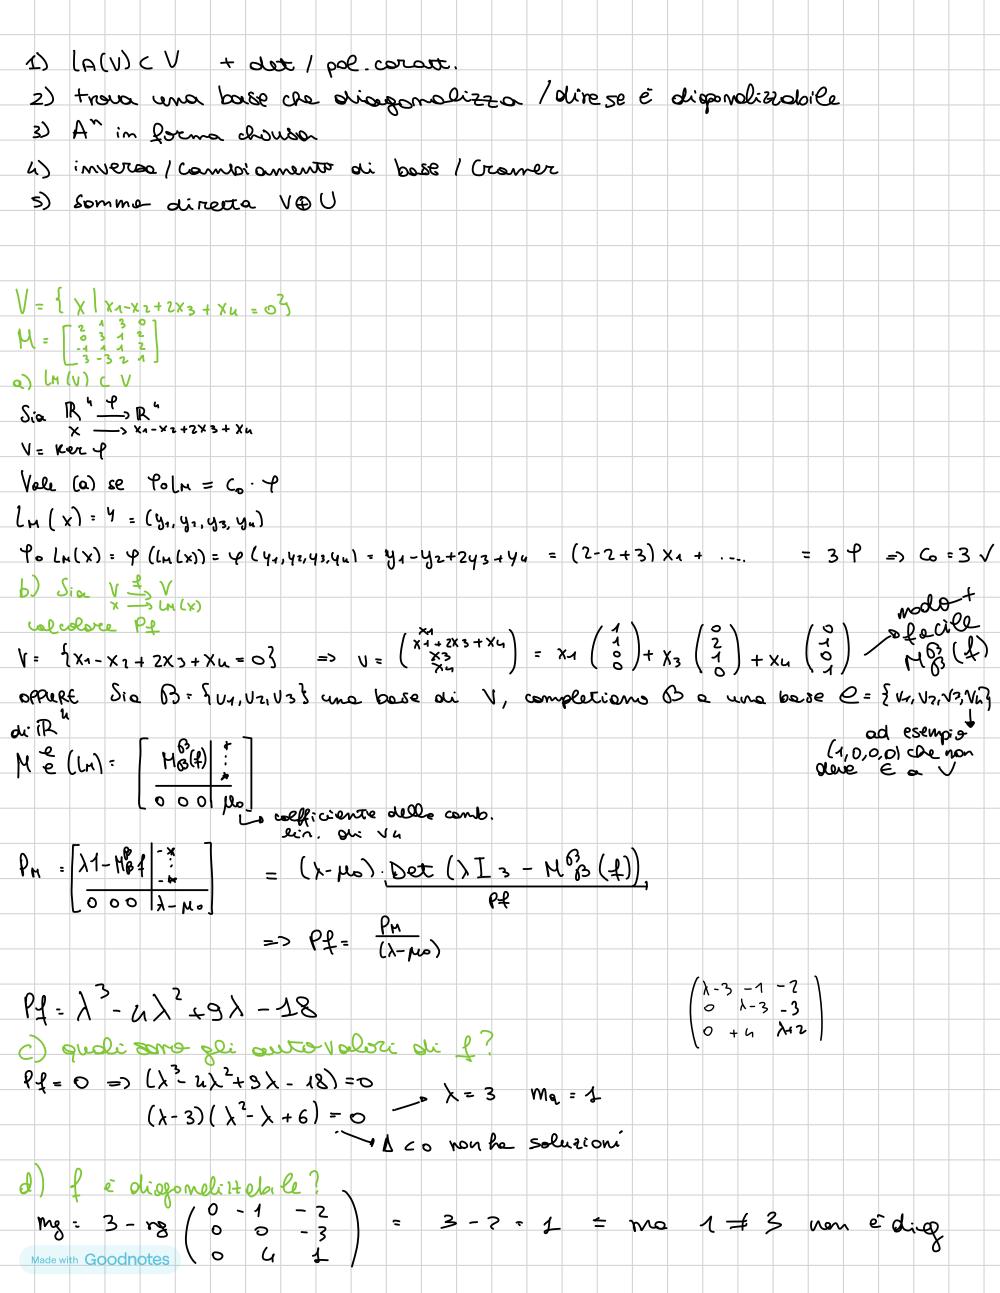 1) LA(V) ⊂ V + det / pol. caratt.
2) trova una base che diagonalizza / dire se è diagonalizzabile
3) Aⁿ in forma chiusa
4) inversa / cambiamento di base / Cramer
5) somma diretta V⊕U
V = { x | x1-x2+2x3+x4 = 0}
M = [2 1 3 0
0 3 1 2
-1 1 1 2
3 -3 2 1]
a) LM(V) ⊂ V
Sia ℝ⁴ →φ ℝ⁴
x → x1-x2+2x3+x4
V = Ker φ
Vale (a) se φ∘LM = c0 · φ
LM(x) = y = (y1, y2, y3, y4)
φ∘LM(x) = φ(LM(x)) = φ(y1,y2,y3,y4) = y1-y2+2y3+y4 = (2-2+3)x1 + .... = 3φ ⇒ c0 = 3 ✓
b) Sia V →f V
x → LM(x)
calcolare Pf
V = {x1-x2+2x3+x4=0} ⇒ v = (x1
x1+2x3+x4
x3
x4) = x1 (1 1 0 0) + x3 (0 2 1 0) + x4 (0 1 0 1) → modo + facile M^β_β(f)
OPPURE Sia β = {v1,v2,v3} una base di V, completiamo β a una base e = {v1,v2,v3,v4}
di ℝ⁴
ad esempio
(1,0,0,0) che non
deve ∈ a V
M^e_e(LM) = [M^β_β(f) | * ⋮ *
0 0 0 | μ0]
↳ coefficiente della comb.
lin. di v4
PM = [λ1 - M^β_β f | -* ⋮ -*
0 0 0 | λ-μ0] = (λ-μ0) · Det (λ I3 - M^β_β (f))
Pf
⇒ Pf = PM / (λ-μ0)
Pf = λ³ - 4λ² + 9λ - 18
(λ-3 -1 -2
0 λ-3 -3
0 +4 λ+2)
c) quali sono gli autovalori di f?
Pf = 0 ⇒ (λ³-4λ²+9λ-18)=0
(λ-3)(λ²-λ+6) = 0 → λ = 3 ma = 1
→ Δ<0 non ha soluzioni
d) f è diagonalizzabile?
mg = 3 - rg (0 -1 -2
0 0 -3
0 4 1) = 3 - 2 = 1 = ma 1 ≠ 3 non è diag
Made with Goodnotes